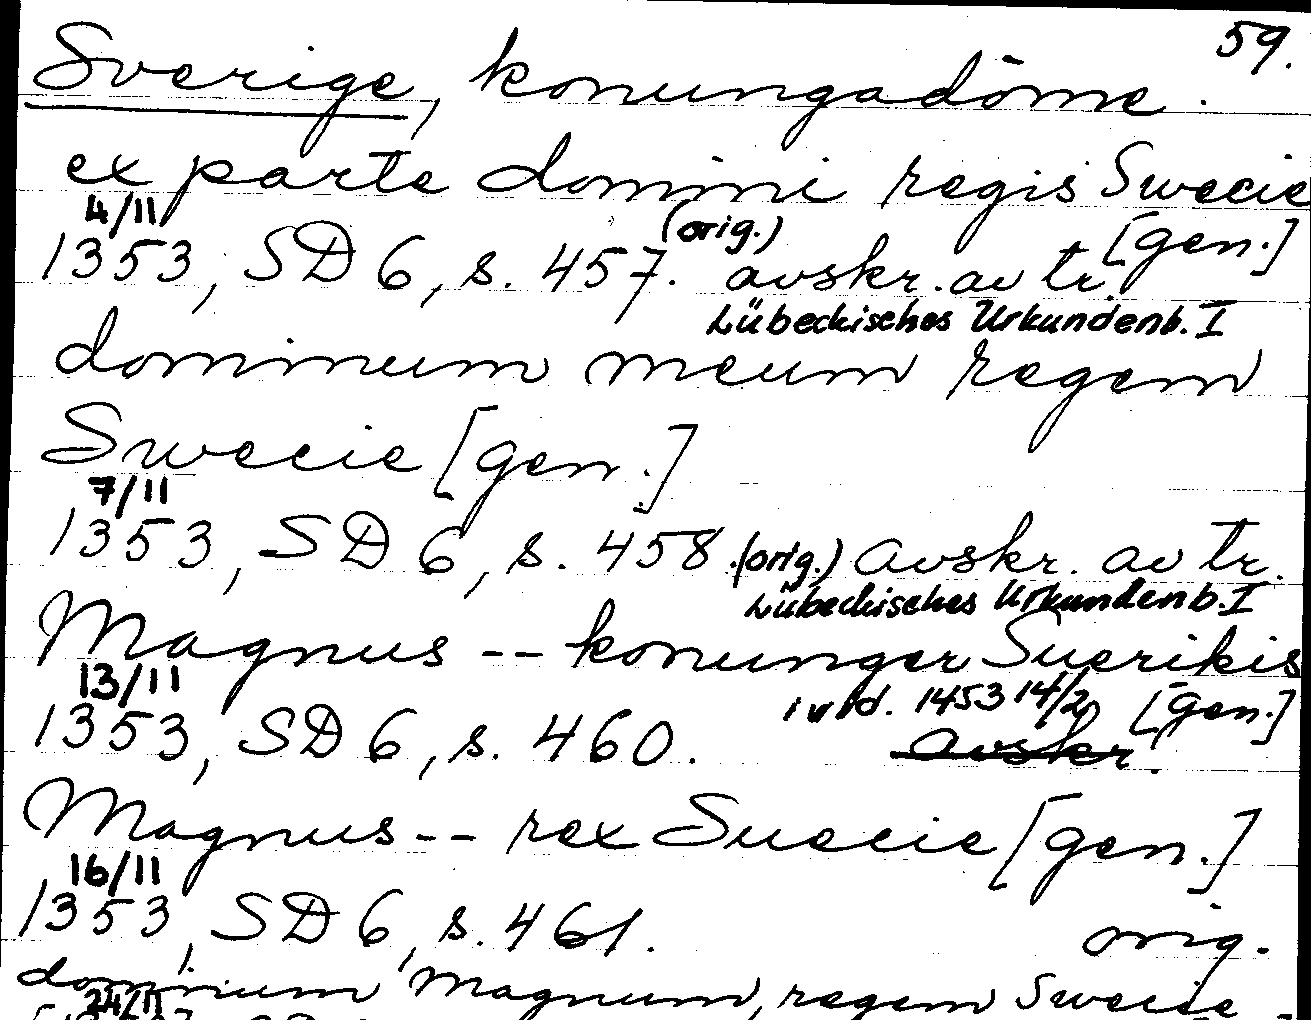 59.
Sverige, konungadöme.
ex parte domini regis Swecie
4/11 [gen.]
1353, SD 6, s. 457. (orig.) avskr. av tr.
Lübeckisches Urkundenb. I
dominum meum regem
Swecie [gen.]
7/11
1353, SD 6, s. 458. (orig.) avskr. av tr.
Lübeckisches Urkundenb. I
Magnus -- konunger Suerikis
13/11 i vid. 1453 14/2 [gen.]
1353, SD 6, s. 460. avskr.
Magnus -- rex Suecie [gen.]
16/11
1353, SD 6, s. 461. orig.
dominum Magnum, regem Swecie
24/11